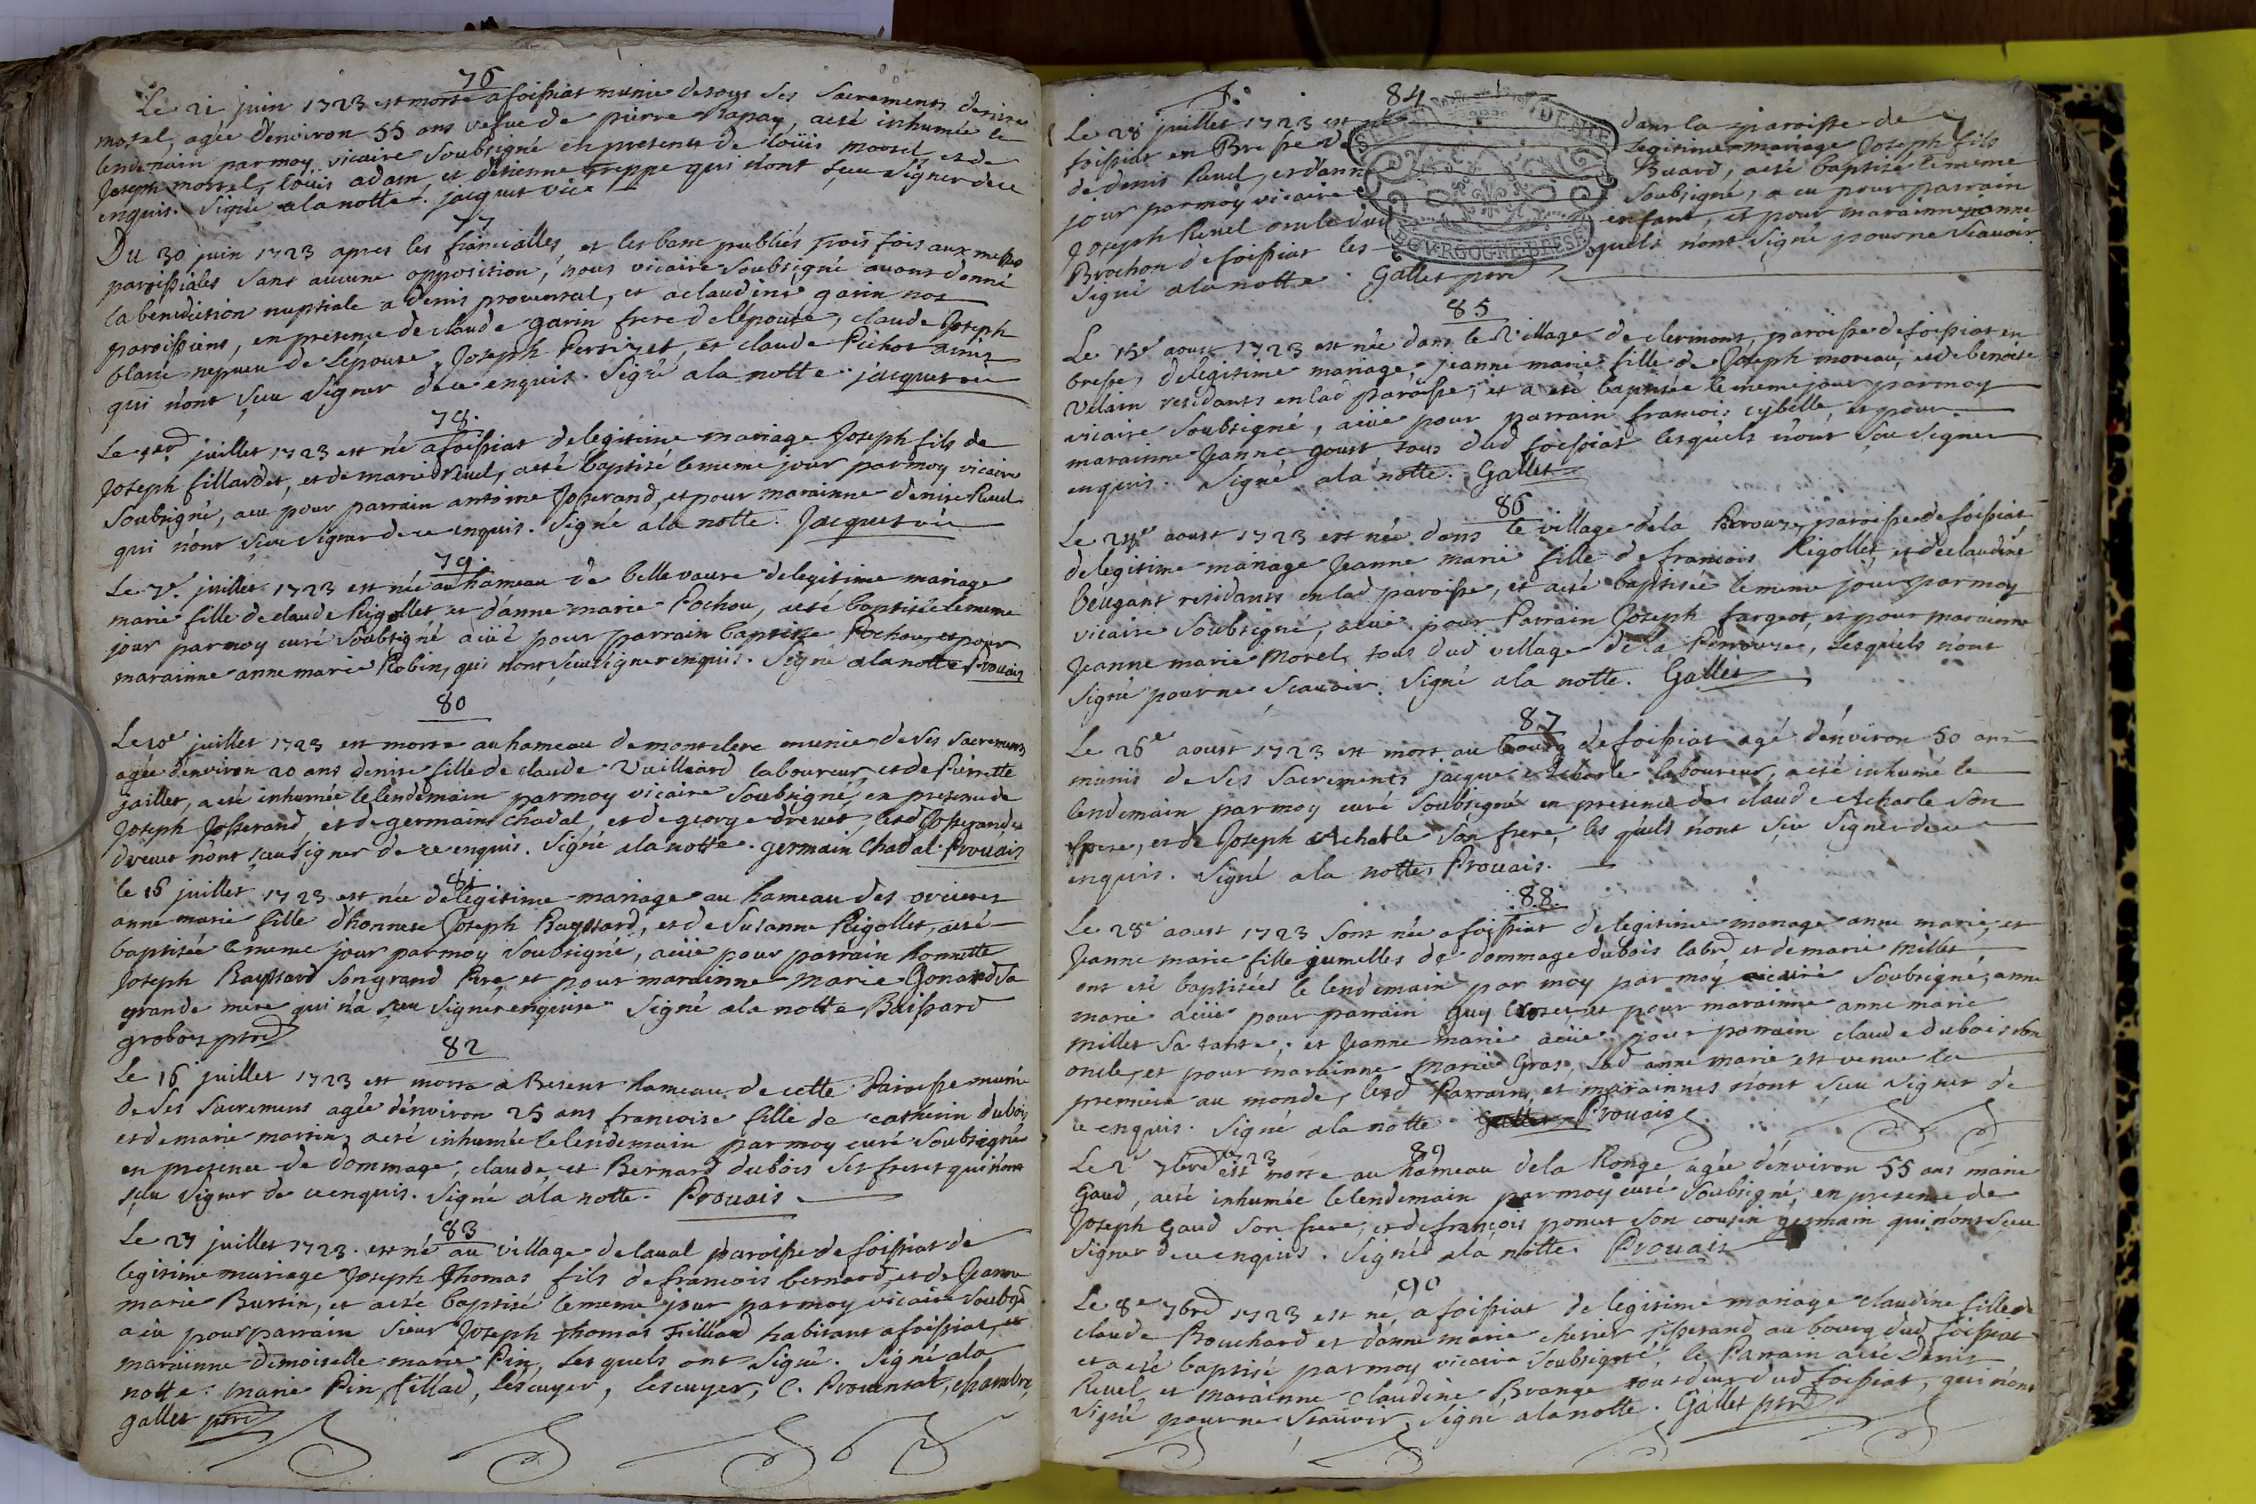 76
Le 21 juin 1723 est morte a foissiat munie de tous ses sacrements denise
morel, agée d'environ 55 ans vefve de pierre Rapay, a eté inhumée le
lendemain par moy vicaire soubsigné en presence de loüis morel et de
Joseph morrel, loüis adam et d'etienne Treppe qui n'ont sçeu signer de ce
enquis. Signé a la notte. jacquet vic
77
Du 30 juin 1723 apres les fiancialles, et les bans publiés trois fois aux messes
paroissiales sans aucune opposition, nous vicaire soubsigné avons donné
la benediction nuptiale a denis provensal, et a claudine garin nos
paroissiens, en presence de claude garin frere de l'epouse, claude Joseph
blanc nepueu de l'epouse, Joseph Perrizet, et claude Pichot amis
qui n'ont sçeu signer de ce enquis. Signé a la notte. jacquet vic
78.
Le juillet 1723 est né a foissiat de legitime mariage Joseph fils de
Joseph fillardet, et de marie Reuel, a eté baptisé le meme jour par moy vicaire
soubsigné, a eu pour parrain antoine Josserand, et pour marainne denise Reuel
qui n'ont sçeu signer de ce enquis. Signé a la notte. Jacquet vic
79.
Le 7e. juillet 1723 est née au hameau de belle vavre de legitime mariage
marie fille de claude Rigollet et d'anne marie Pochon, a eté baptisée le meme
jour par moy curé soubsigné a eüe pour parrain baptiste Pochon, et pour
marainne anne marie Robin, qui n'ont sçeu signer enquis. Signé a la notte Prouais
80
Le 10e juillet 1723 est morte au hameau de montclerc munie de ses sacrements
agée d'environ 20 ans denise fille de claude Vuilliard laboureur, et de Pierrette
jaillet, a eté inhumée le lendemain par moy vicaire soubsigné, en presence de
Joseph Josserand, et de germain chadal, et de george dreuet, lesd Josserand et
dreuet n'ont sceu signer de ce enquis. Signé a la notte. germain Chadal. Prouais
81.
le 16 juillet 1723 est née de legitime mariage au hameau des orcieres
anne marie fille d'honneste Joseph Bayssard, et de Susanne Rigollet, a eté
baptisée le meme jour par moy soubsigné, a eüe pour parrain honneste
Joseph Bayssard son grand Pere, et pour marainne marie Gonard sa
grande mere qui n'a sçeu signer enquise. Signé a la notte Baissard
grobon ptre
82
Le 16 juillet 1723 est morte a Besent hameau de cette Paroisse munie
de ses sacremens agée d'environ 25 ans francoise fille de catherin dubois
et de marie martin, a eté inhumée le lendemain par moy curé soubsigné
en presence de dommage, claude, et Bernard dubois ses freres qui n'ont
sçeu signer de ce enquis. Signé a la notte. Prouais.
83
Le 27 juillet 1723. est né au village de laval paroisse de foissiat de
legitime mariage Joseph Thomas fils de francois bernard, et de Jeanne
marie Burtin, et a eté baptisé le meme jour par moy vicaire soubgé
a eu pour parrain sieur Joseph thomas Filliard habitant a foissiat, et
marainne demoiselle marie Pin, lesquels ont signé. Signé a la
notte. marie Pin, fillad, lescuyer, lescuyer, C. Prouensat, chambre,
gallet ptre
84
Le 28 juillet 1723 est né dans la paroisse de
foissiat en Bresse de legitime mariage Joseph fils
de denis Reuel, et d'anne Buard, a eté baptisé le meme
jour par moy vicaire soubsigné, a eu pour parrain
Joseph Reuel oncle dud enfant, et pour marainne janne
Brochon de foissiat lesquels n'ont signé pour ne sçavoir
signé a la notte. Gallet ptre
85
Le 15e aoust 1723 est née dans le village de clermont, paroisse de foissiat en
bresse, de legitime mariage, jeanne marie fille de Joseph moreau, et de benoite
Velain residants en lad paroisse, et a eté baptisée le meme jour par moy
vicaire soubsigné, a eüe pour parrain francois cybelle, et pour
marainne Jeanne goust, tous dud foissiat lesquels n'ont sçeu signer
enquis. Signé a la notte. Gallet
86
Le 24e aoust 1723 est née dans le village de la Perouse, paroisse de foissiat
de legitime mariage Jeanne marie fille de francois Rigollet, et de claudine
beugant residants en lad paroisse, et a eté baptisée le meme jour par moy
vicaire soubsigné, a eüe pour Parrain Joseph fargeot, et pour marainne
Jeanne marie Morel, tous dud village de la Perouse, lesquels n'ont
signé pour ne sçavoir. Signé a la notte. Gallet
87
Le 26e aoust 1723 est mort au bourg de foissiat agé d'environ 50 ans
munis de ses sacrements jacque Acharle laboureur, a eté inhumé le
lendemain par moy curé soubsigné en presence de claude Acharle son
frere, et de Joseph Acharle son frere, lesquels n'ont sçeu signer de ce
enquis. Signé a la notte. Prouais.
88.
Le 28e aoust 1723 sont née a foissiat de legitime mariage anne marie, et
Jeanne marie fille gumelles de dommage dubois labr, et de marie Millet
ont eté baptisées le lendemain par moy par moy vicaire soubsigné, anne
marie a eüe pour parrain Guy et pour marainne anne marie
Millet sa tante, et Jeanne marie a eüe pour parrain claude dubois son
oncle, et pour marainne marie Gras, lad anne marie est venue la
premiere au monde, lesd Parrains, et marainnes n'ont sçeu signer de
ce enquis. Signé a la notte. Prouais.
89
Le 2e 7bre 1723 est morte au hameau de la Ronge agée d'environ 55 ans marie
Gaud, a eté inhumée le lendemain par moy curé soubsigné, en presence de
Joseph Gaud son frere, et de françois ponut son cousin germain qui n'ont sceu
signer de ce enquis. Signé a la notte. Prouais
90
Le 8e 7bre 1723 est né a foissiat de legitime mariage claudine fille de
claude Bouchard et d'anne marie cherier tisserand au bourg dud foissiat
et a eté baptisé par moy vicaire soubsigné, le Parrain a eté Denis
Reuel, et marainne Claudine Brange tous deux dud foissiat, qui n'ont
signé pour ne sçauoir. Signé a la notte. Gallet ptre